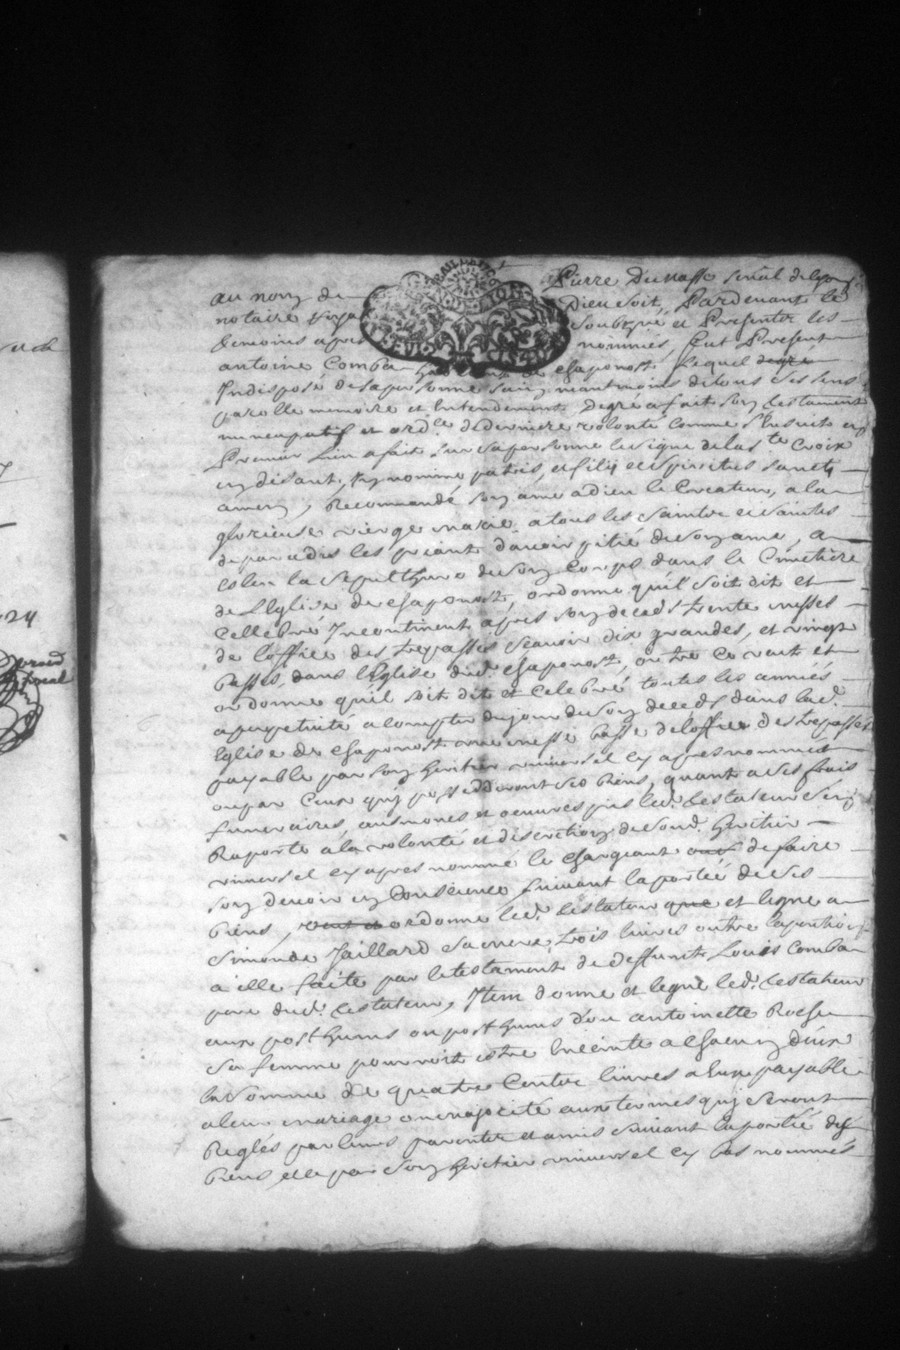 Pierre Dumasse senal de Lyon
au nom de Dieu soit Pardevant le
notaire royal Soubzné et Presentz les
temoins apres nommés, fut Present
antoine Comba de Chaponost lequel
Indisposé de sa personne sain neantmoins de tous ses sens
parolle memoire et Entendement degré a fait son testament
nuncupatif et ord.ce de derniere volonté comme s'Ensuit en
Premier Lieu a fait sur sa personne le signe de la s.te Croix
en disant, In nomine patris, et filii et spiritus sancti
amen, Recommandé son ame a dieu le Createur, a la
glorieuse vierge marie a tous les saintz et saintes
de paradis les priant d'avoir pitié de son ame, a
eslen la sepulthure de son Corps dans le Cimetiere
de L'Eglise de Chaponost, ordonne qu'il soit dit et
Cellebré Incontinent apres son deceds trente messes
de loffice des trepassés scavoir dix grandes, et vingt
basses dans l'Eglise dud. Chaponost, outre ce veut et
ordonne qu'il soit dit et Celebré toutes les années
a perpetuité a compter du jour de son deceds dans lad.
Eglise de Chaponost une messe basse de loffice des trepassés
payable par son heritier universel cy apres nommé
ou par Ceux qui possedderont ses biens, quant a ses frais
funeraires, aumones et oeuvres pies led. testateur s'en
Raporte à la volonté et discretion de sond. heritier
universel cy apres nommé le Chargeant de faire
son devoir en Conscience suivant la portée de ses
biens, ordonne led. testateur et legue a
Simonde Jaillard sa mere trois livres outre la portion
a elle faite par le testament de deffunt Louis Comba
pere dud. testateur, Item donne et legue led. testateur
aux posthumes ou posthume dou antoinette Roche
sa femme pourroit estre Enceinte a Chacun d'eux
la somme de quatre Centz livres a eux payable
a leur mariage ou majorité aux termes qui seront
Reglés par leurs parentz et amis suivant la portée des
biens, et le par son heritier universel cy bas nommé